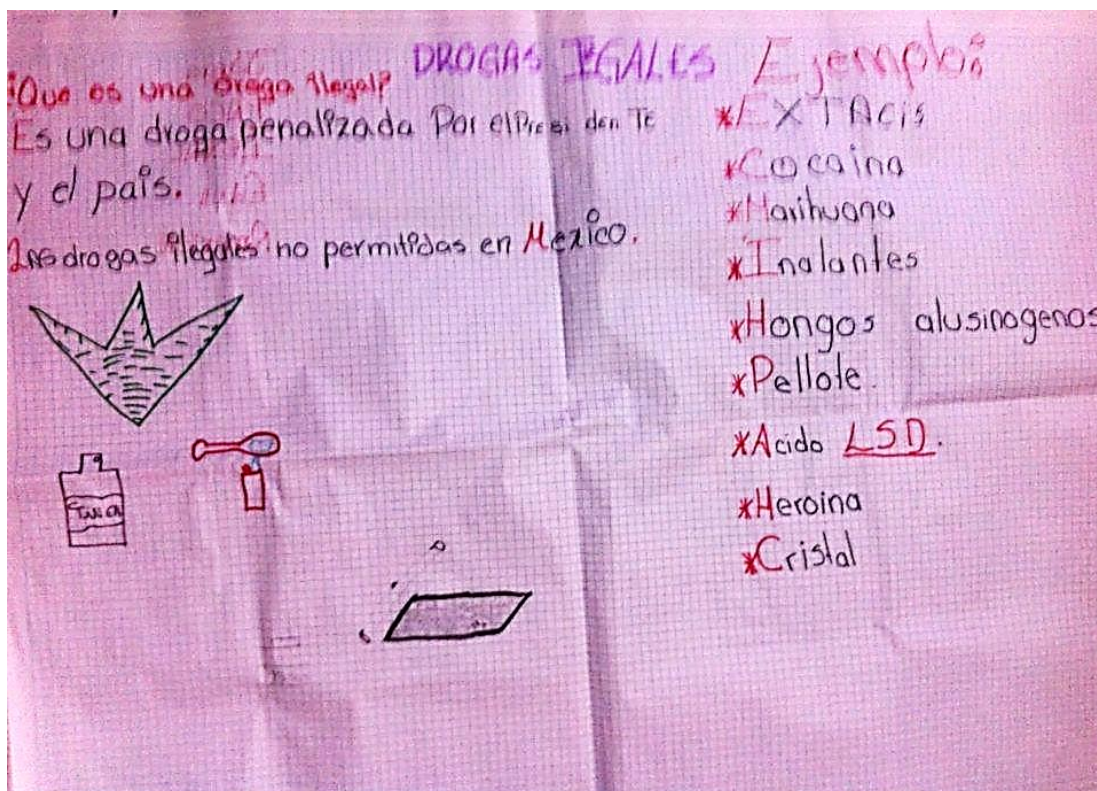 DROGAS IEGALES
¿Que es una droga ilegal?
Es una droga penalizada Por el Presi den Te
y el país.
Las drogas ilegales no permitidas en Mexico.
Ejemplo:
*EXTAcis
*Cocaina
*Marihuana
*Inalantes
*Hongos alusinogenos
*Pellote.
*Acido LSD.
*Heroina
*Cristal